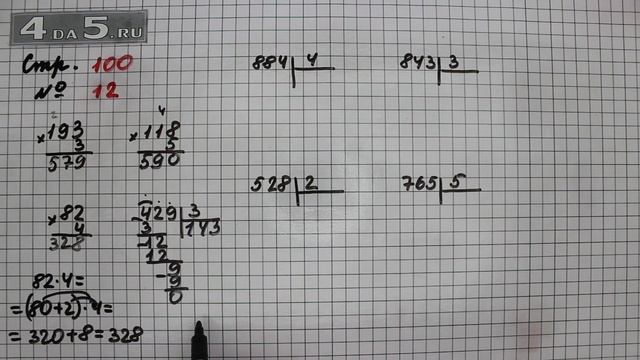 4 DA 5.RU
Стр. 100
№ 12
2
×193
3
579
4
×118
5
590
×82
4
328
82·4=
=(80+2)·4=
=320+8=328
-429|3
3 |143
-12
12
-9
9
0
884|4
843|3
528|2
765|5